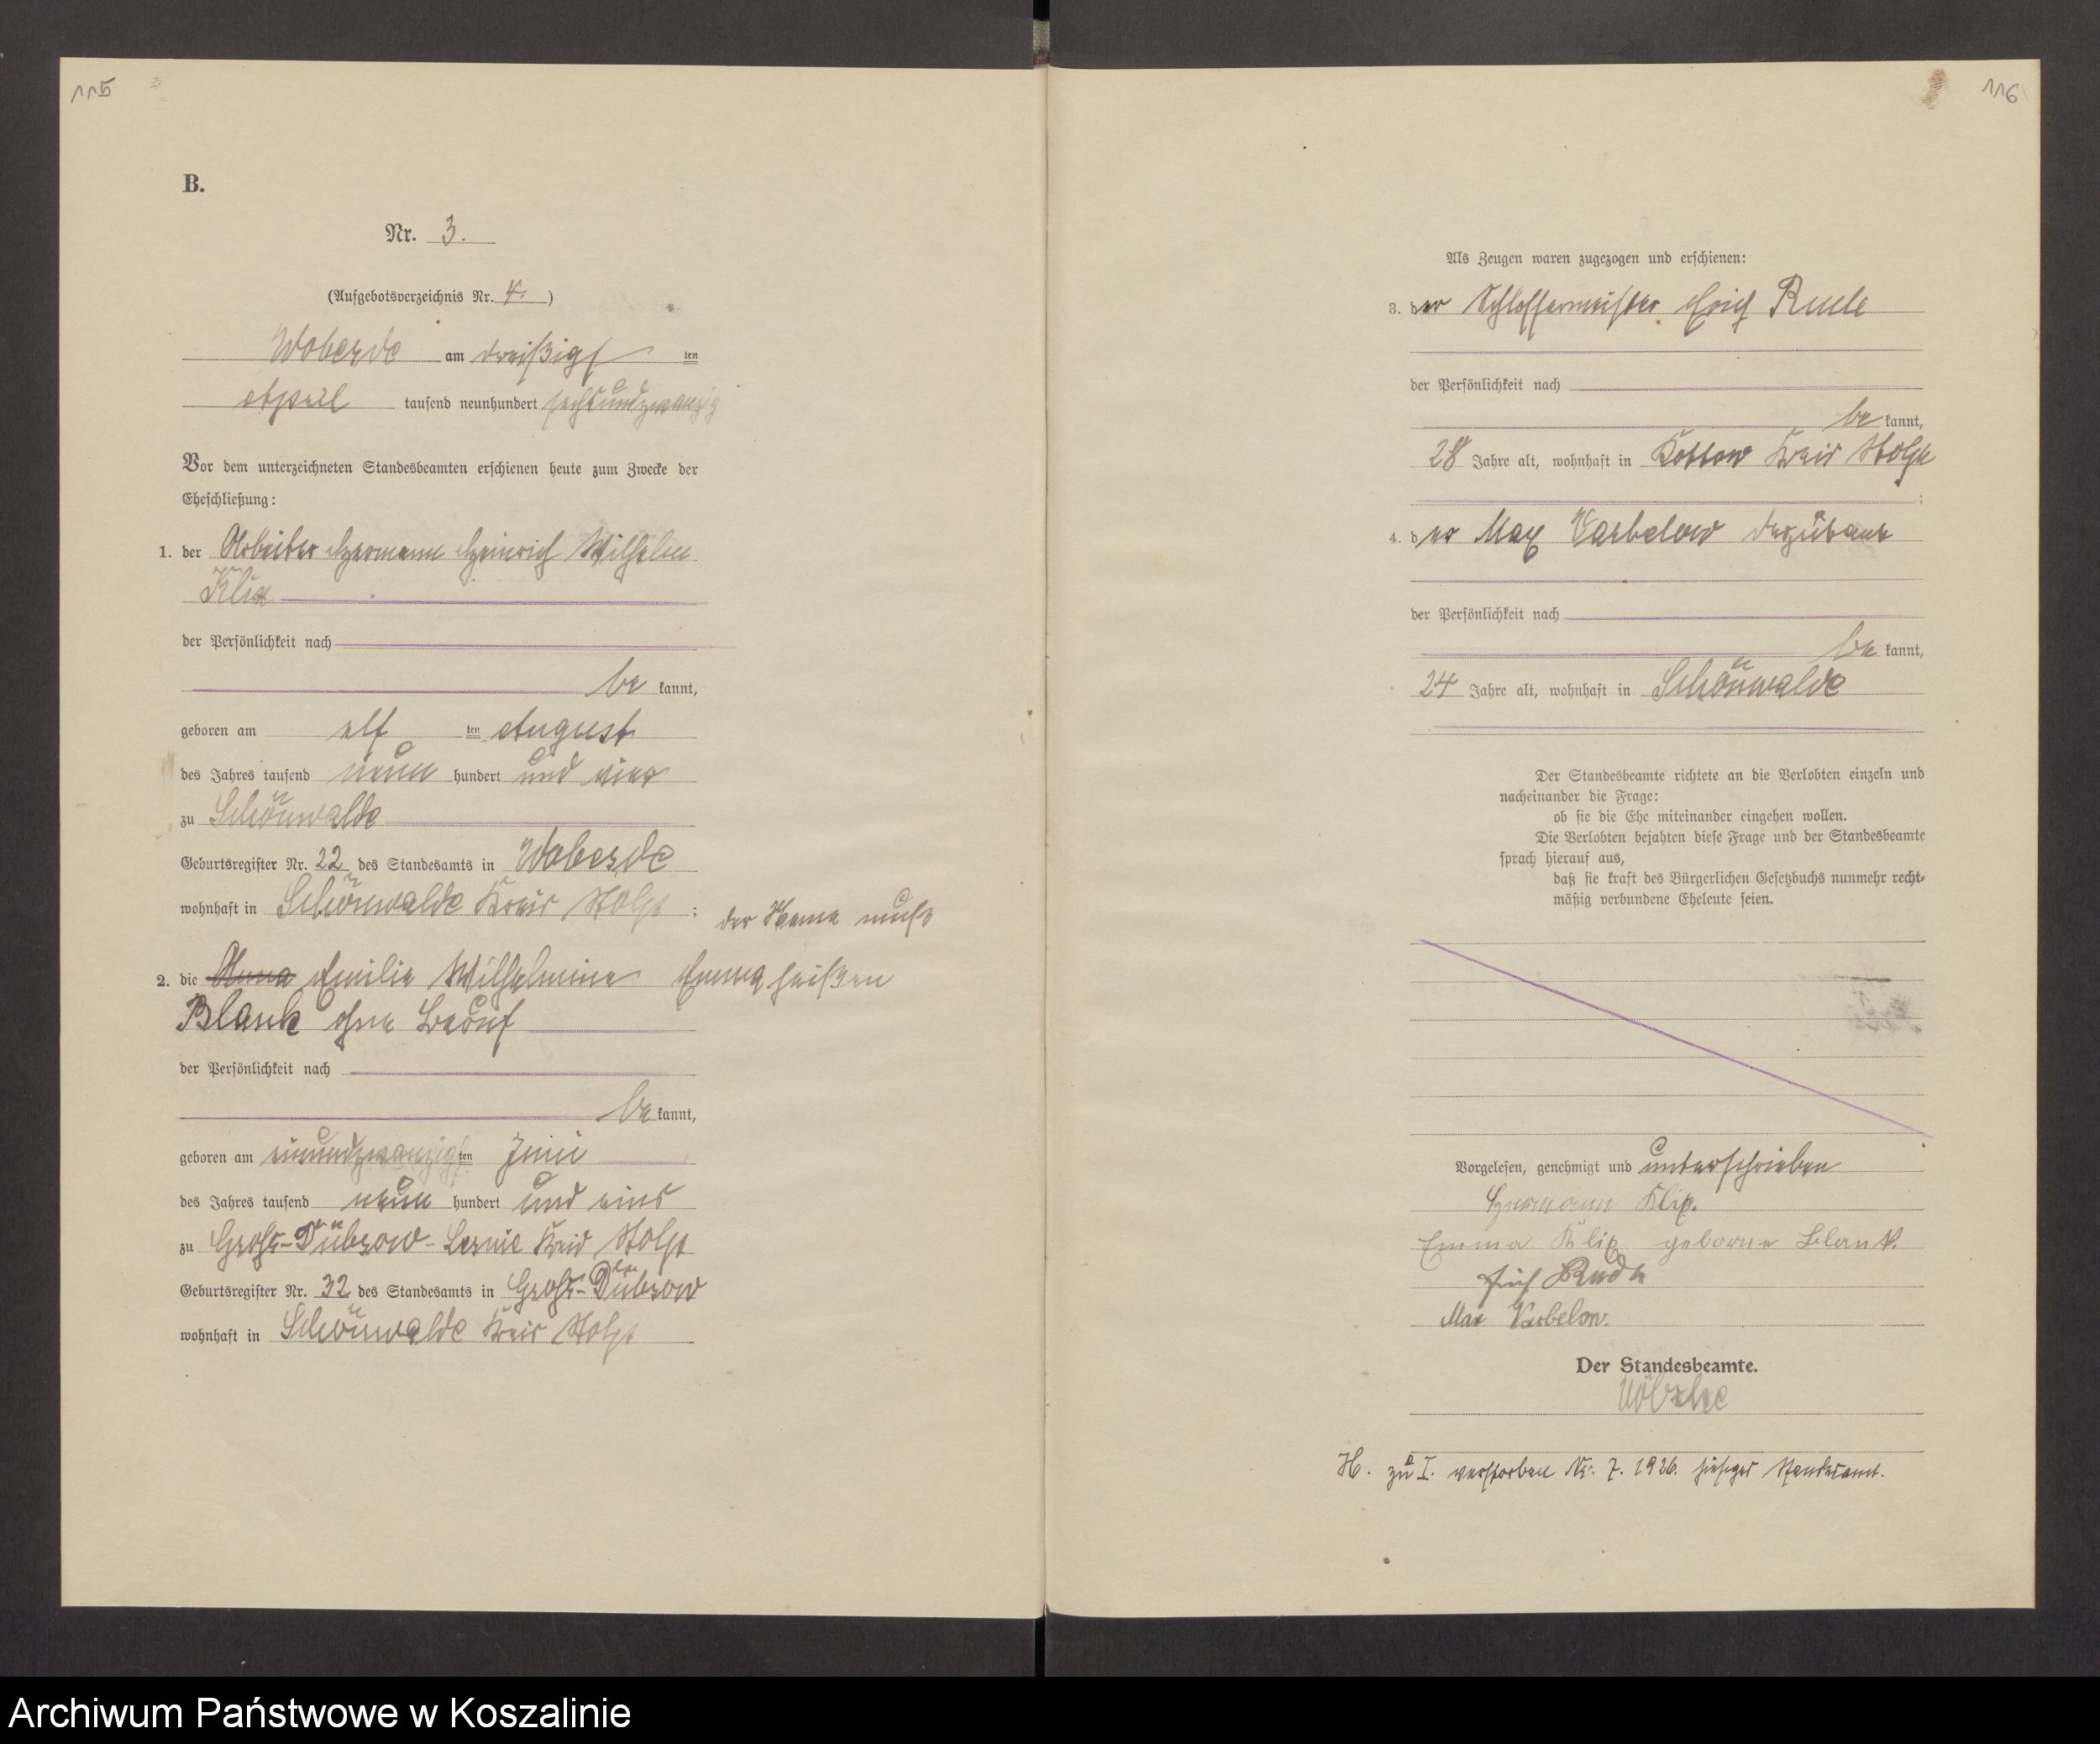 115
B.
Nr. 3.
(Aufgebotsverzeichnis Nr. 4.)
Wobesde am dreißigsten
April tausend neunhundert sechsundzwanzig
Vor dem unterzeichneten Standesbeamten erschienen heute zum Zwecke der
Eheschließung:
1. der Arbeiter Hermann Heinrich Wilhelm
Klix
der Persönlichkeit nach
be kannt,
geboren am elf ten August
des Jahres tausend neun hundert und vier
zu Schönwalde
Geburtsregister Nr. 22 des Standesamts in Wobesde
wohnhaft in Schönwalde Kreis Stolp;
der Name muß
2. die Anna Emilie Wilhelmine Emma heißen
Blank ohne Beruf
der Persönlichkeit nach
be kannt,
geboren am einundzwanzigsten Juni
des Jahres tausend neun hundert und eins
zu Groß-Dübsow Kreis Stolp
Geburtsregister Nr. 32 des Standesamts in Groß-Dübsow
wohnhaft in Schönwalde Kreis Stolp
116
Als Zeugen waren zugezogen und erschienen:
3. der Schlossermeister Erich
der Persönlichkeit nach
be kannt,
28 Jahre alt, wohnhaft in Kottow Kreis Stolp
;
4. der Max Varbelow
der Persönlichkeit nach
be kannt,
24 Jahre alt, wohnhaft in Schönwalde
Der Standesbeamte richtete an die Verlobten einzeln und
nacheinander die Frage:
ob sie die Ehe miteinander eingehen wollen.
Die Verlobten bejahten diese Frage und der Standesbeamte
sprach hierauf aus,
daß sie kraft des Bürgerlichen Gesetzbuchs nunmehr recht-
mäßig verbundene Eheleute seien.
Vorgelesen, genehmigt und unterschrieben
Hermann Klix.
Emma Klix geborne Blank.
Erich
Max Varbelow.
Der Standesbeamte.
H. zu I. verstorben Nr. 7. 1926. hiesiges Standesamt.
Archiwum Państwowe w Koszalinie